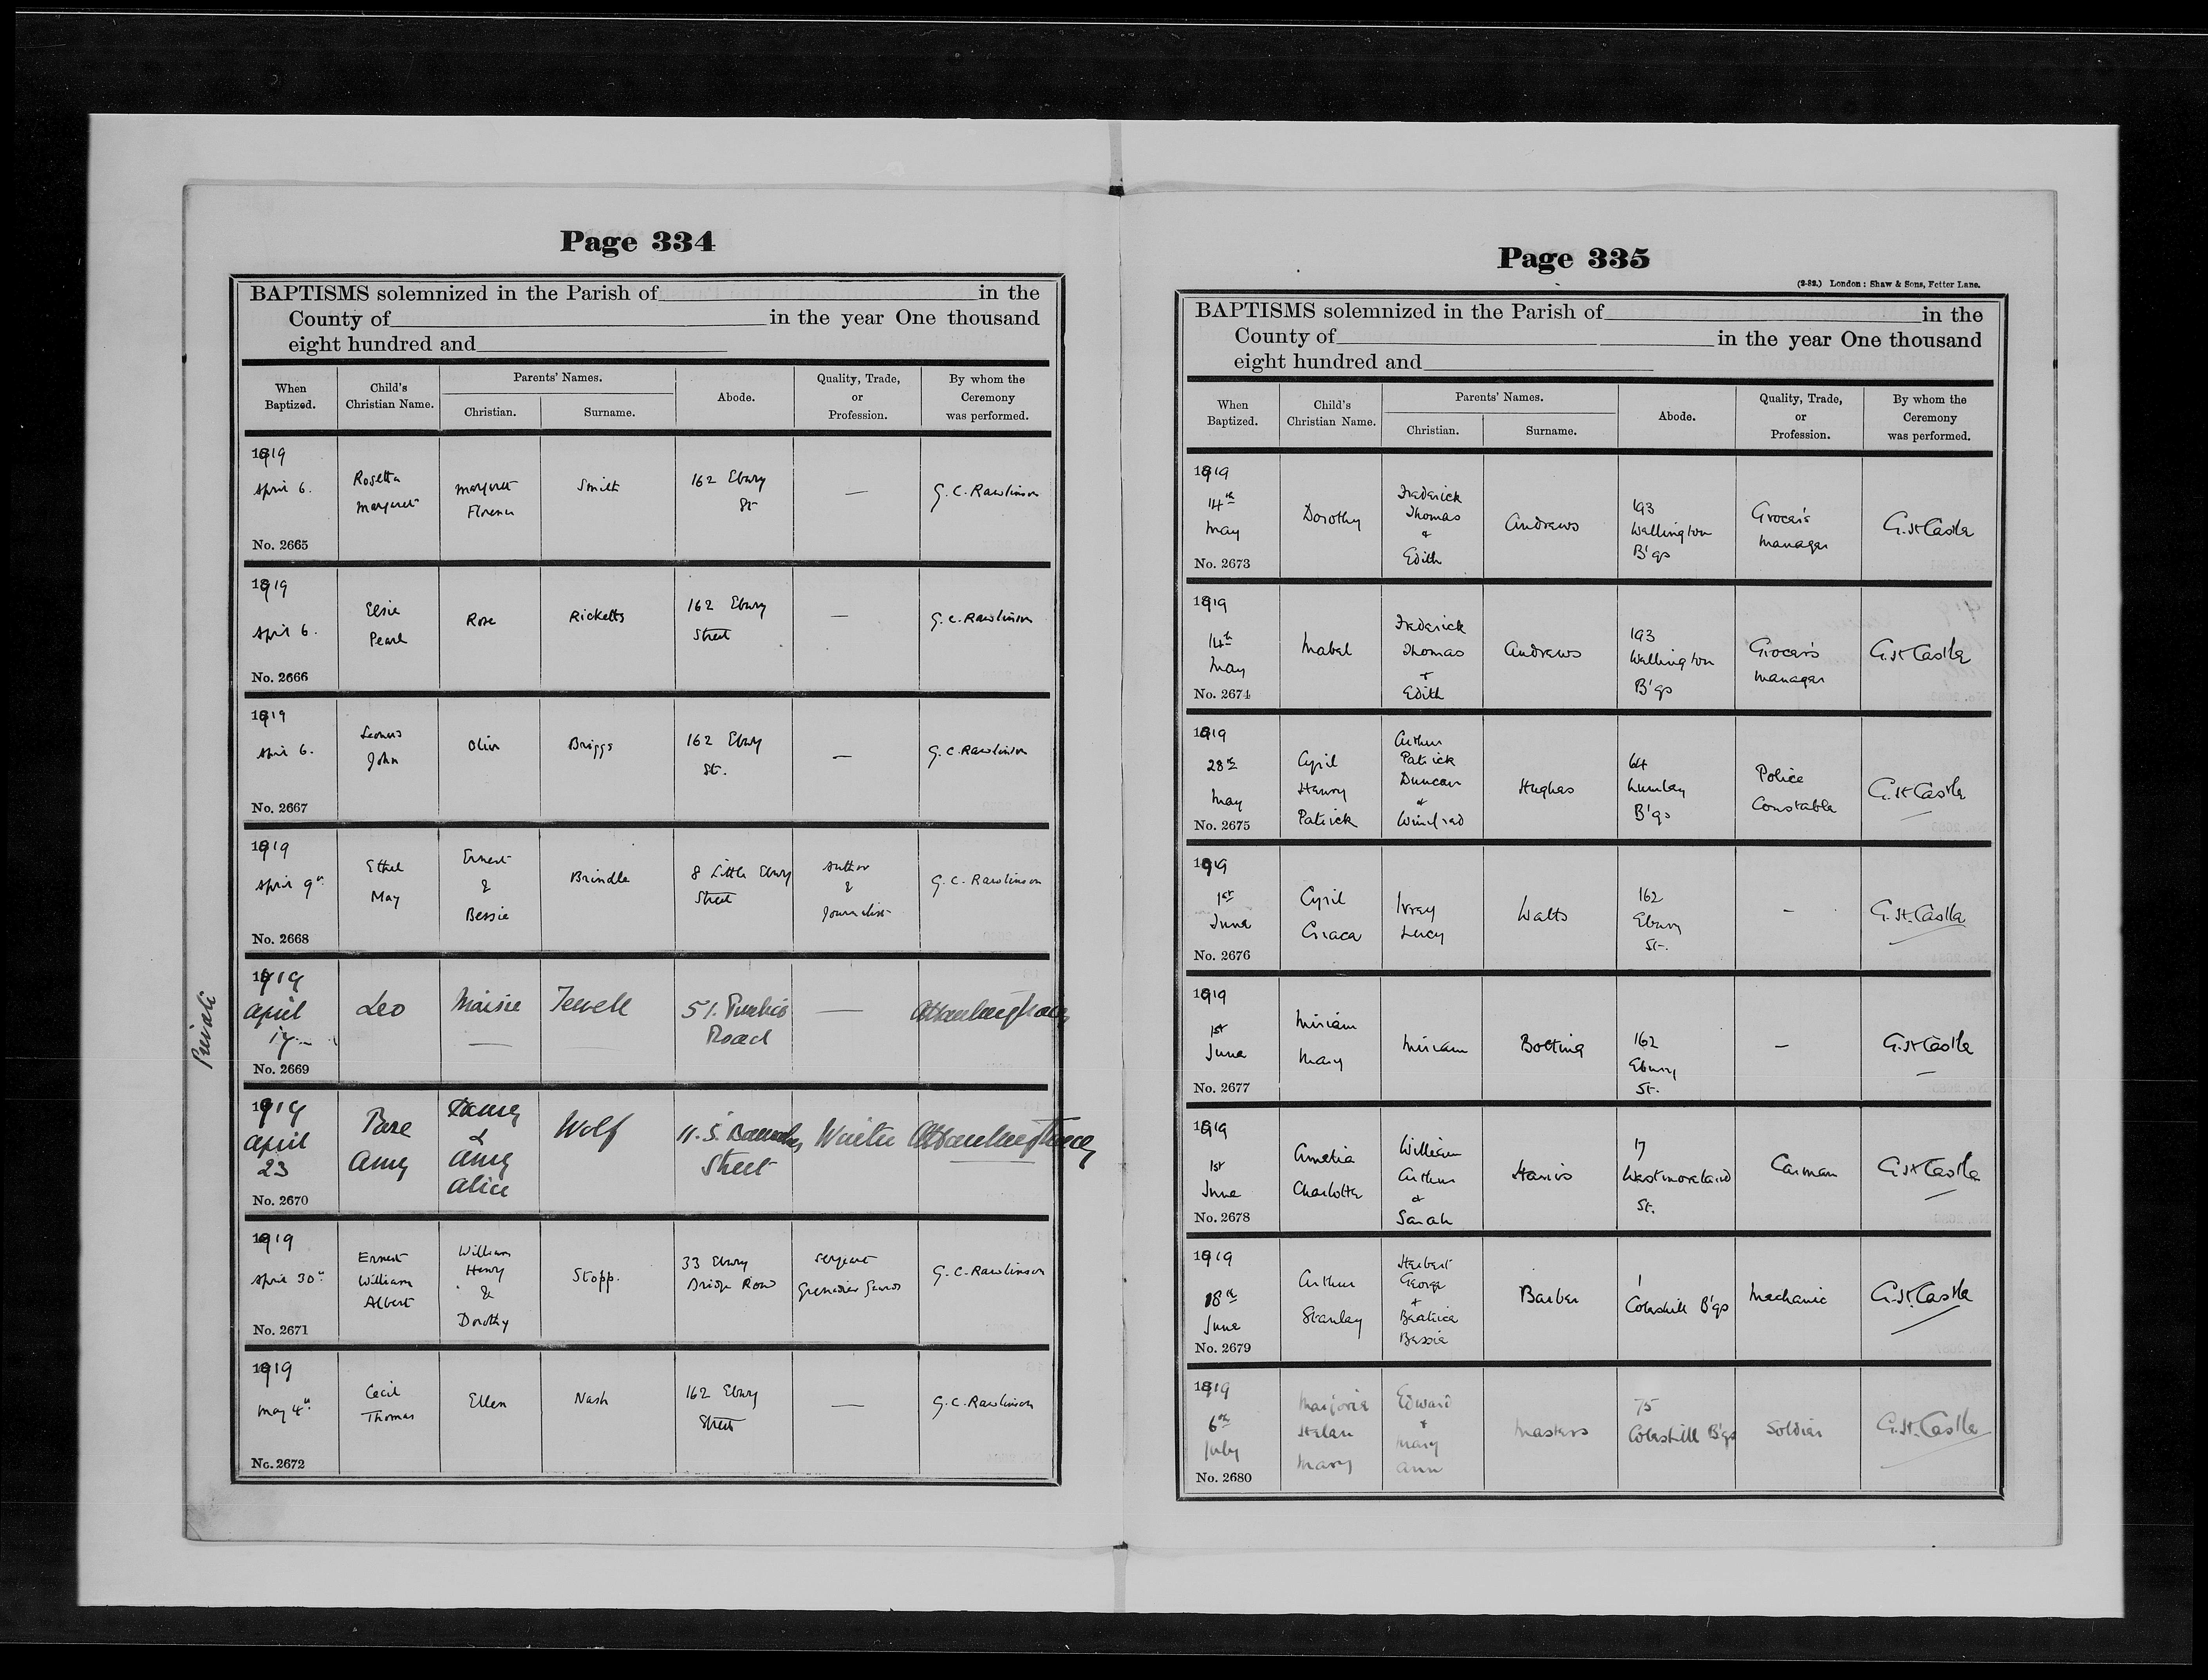 Page 334
BAPTISMS solemnized in the Parish of in the
County of in the year One thousand
eight hundred and
When Baptized. Child's Christian Name. Parents' Names. Christian. Surname. Abode. Quality, Trade, or Profession. By whom the Ceremony was performed.
1919
April 6.
Rosetta
Margaret
Margaret
Florence
Smith
162 Ebury
St
—
G. C. Rawlinson
No. 2665
1919
April 6.
Elsie
Pearl
Rose
Ricketts
162 Ebury
Street
—
G. C. Rawlinson
No. 2666
1919
April 6.
John
Olive
Briggs
162 Ebury
St.
—
G. C. Rawlinson
No. 2667
1919
April 9th
Ethel
May
Ernest
&
Bessie
Brindle
8 Little Ebury
Street
Author
&
Journalist
G. C. Rawlinson
No. 2668
1919
April
17
Leo
Maisie
Jewell
51.
Road
—
No. 2669
1919
April
23
Amy
&
Amy
Alice
Wolf
11. S. Barnabas
Street
No. 2670
1919
April 30th
Ernest
William
Albert
William
Henry
&
Dorothy
Stopp.
33 Ebury
Bridge Row
Sergeant
Grenadier Guards
G. C. Rawlinson
No. 2671
1919
May 4th
Cecil
Thomas
Ellen
Nash
162 Ebury
Street
—
G. C. Rawlinson
No. 2672
Page 335
(2-82.) London: Shaw & Sons, Fetter Lane.
BAPTISMS solemnized in the Parish of in the
County of in the year One thousand
eight hundred and
When Baptized. Child's Christian Name. Parents' Names. Christian. Surname. Abode. Quality, Trade, or Profession. By whom the Ceremony was performed.
1919
14th
May
Dorothy
Frederick
Thomas
+
Edith
Andrews
193
Wellington
B'gs
Grocer's
Manager
G. St Castle
No. 2673
1919
14th
May
Mabel
Frederick
Thomas
+
Edith
Andrews
193
Wellington
B'gs
Grocer's
Manager
G. St Castle
No. 2674
1919
28th
May
Cyril
Henry
Patrick
Arthur
Patrick
Duncan
+
Winifred
Hughes
64
Lumley
B'gs
Police
Constable
G. St Castle
No. 2675
1919
1st
June
Cyril
Lucy
Watts
162
Ebury
St.
—
G. St. Castle
No. 2676
1919
1st
June
Miriam
Mary
Miriam
Botting
162
Ebury
St.
—
G. St Castle
No. 2677
1919
1st
June
Amelia
Charlotte
William
Arthur
+
Sarah
Harris
17
Westmoreland
St.
Carman
G. St Castle
No. 2678
1919
18th
June
Arthur
Stanley
Herbert
George
+
Beatrice
Bessie
Barber
1
Coleshill B'gs
Mechanic
G. St. Castle
No. 2679
1919
6th
July
Marjorie
Helen
Mary
Edward
+
Mary
Ann
Masters
75
Coleshill B'gs
Soldier
G. St. Castle
No. 2680